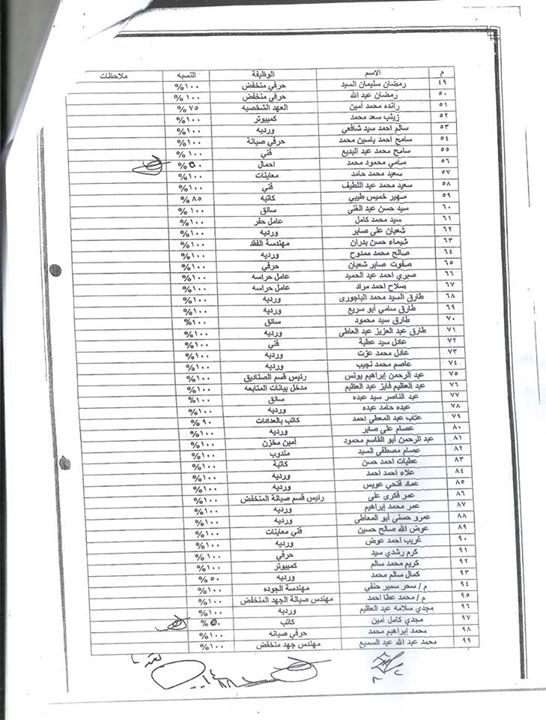 م الاسم الوظيفة النسبه ملاحظات
٤٩ رمضان سليمان السيد حرفي منخفض ١٠٠%
٥٠ رمضان عبد الله حرفي منخفض ١٠٠%
٥١ رانده محمد أمين العهد الشخصيه ٧٥%
٥٢ زينب سعد محمد كمبيوتر ١٠٠%
٥٣ سالم احمد سيد شافعي ورديه ١٠٠%
٥٤ سامح احمد ياسين محمد حرفي صيانة ١٠٠%
٥٥ سامح محمد عبد البديع فني ١٠٠%
٥٦ سامي محمود محمد احمال ٥٠%
٥٧ سعيد محمد حامد معاينات ١٠٠%
٥٨ سعيد محمد عبد اللطيف فني ١٠٠%
٥٩ سهير خميس طيبي كاتبه ٨٥%
٦٠ سيد حسن عبد الغني سائق ١٠٠%
٦١ سيد محمد كامل عامل حفر ١٠٠%
٦٢ شعبان علي صابر ورديه ١٠٠%
٦٣ شيماء حسن بدران مهندسة الفقد ١٠٠%
٦٤ صالح محمد ممدوح ورديه ١٠٠%
٦٥ صفوت صابر شعبان حرفي ١٠٠%
٦٦ صبري احمد عبد الحميد عامل حراسه ١٠٠%
٦٧ صلاح احمد مراد عامل حراسه ١٠٠%
٦٨ طارق السيد محمد الباجوري ورديه ١٠٠%
٦٩ طارق سامي أبو سريع ورديه ١٠٠%
٧٠ طارق سيد محمود سائق ١٠٠%
٧١ طارق عبد العزيز عبد العاطي ورديه ١٠٠%
٧٢ عادل سيد عطية فني ١٠٠%
٧٣ عادل محمد عزت ورديه ١٠٠%
٧٤ عاصم محمد نجيب ورديه ١٠٠%
٧٥ عبد الرحمن إبراهيم يونس رئيس قسم الصناديق ١٠٠%
٧٦ عبد العظيم فايز عبد العظيم مدخل بيانات المتابعه ١٠٠%
٧٧ عبد الناصر سيد عبده سائق ١٠٠%
٧٨ عبده حامد عبده ورديه ١٠٠%
٧٩ عتاب عبد المعطي احمد كاتب بالعدادات ٩٠%
٨٠ عصام علي صابر ورديه ١٠٠%
٨١ عبد الرحمن أبو القاسم محمود أمين مخزن ١٠٠%
٨٢ عصام مصطفي السيد مندوب ١٠٠%
٨٣ عطيات احمد حسن كاتبة ١٠٠%
٨٤ علاء احمد احمد ورديه ١٠٠%
٨٥ عماد فتحي عويس ورديه ١٠٠%
٨٦ عمر فكري علي رئيس قسم صيانة المنخفض ١٠٠%
٨٧ عمر محمد إبراهيم ورديه ١٠٠%
٨٨ عمرو حسني أبو المعاطي ورديه ١٠٠%
٨٩ عوض الله صالح حسين فني معاينات ١٠٠%
٩٠ غريب احمد عوض ورديه ١٠٠%
٩١ كرم رشدي سيد حرفي ١٠٠%
٩٢ كريم محمد سالم كمبيوتر ١٠٠%
٩٣ كمال سالم محمد ورديه ٥٠%
٩٤ م / سحر سمير حنفي مهندسة الجوده ١٠٠%
٩٥ م / محمد عطا احمد مهندس صيانة الجهد المنخفض ١٠٠%
٩٦ مجدي سلامه عبد العظيم ورديه ١٠٠%
٩٧ مجدي كامل أمين كاتب ٥٠%
٩٨ محمد إبراهيم محمد حرفي صيانه ١٠٠%
٩٩ محمد عبد الله عبد السميع مهندس جهد منخفض ١٠٠%